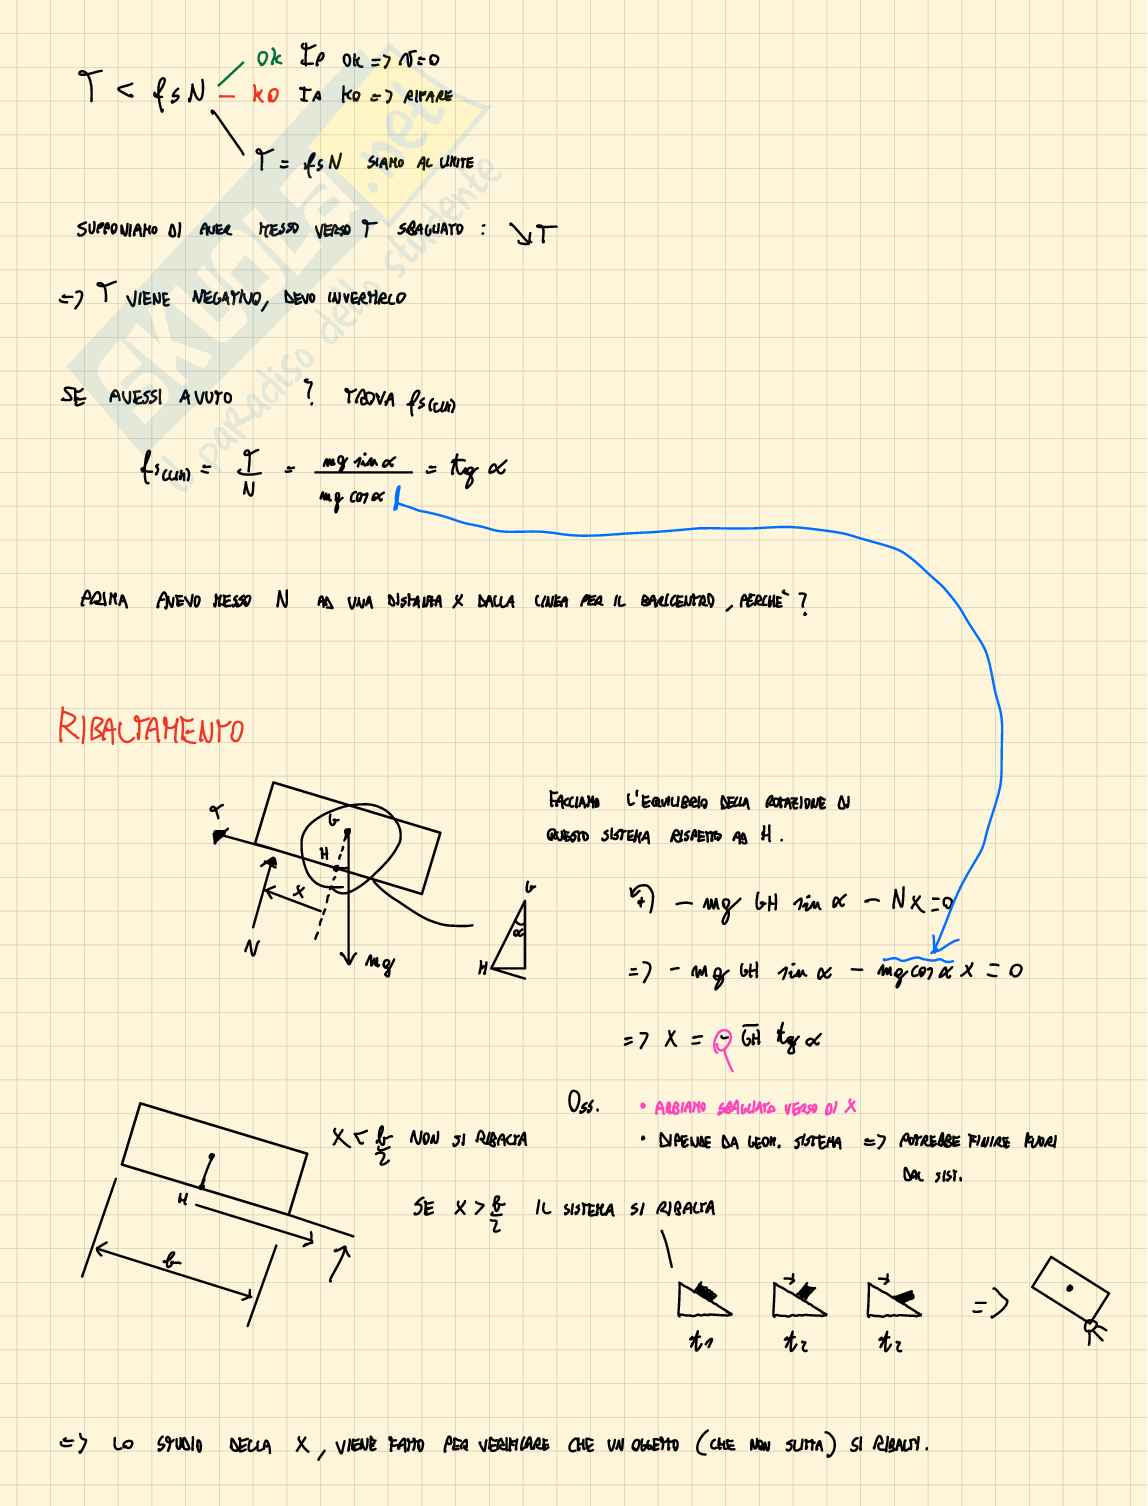 T < fsN
OK Ip OK => v=0
KO IA KO => RIFARE
T = fsN SIAMO AL LIMITE
SUPPONIAMO DI AVER MESSO VERSO T SBAGLIATO : ↘T
=> T VIENE NEGATIVO, DEVO INVERTIRLO
SE AVESSI AVUTO ? TROVA fs(LIM)
fs(LIM) = T/N = mg sin α / mg cos α = tg α
PRIMA AVEVO MESSO N AD UNA DISTANZA X DALLA LINEA PER IL BARICENTRO, PERCHÈ ?
RIBALTAMENTO
T
G
H
X
N
mg
G
α
H
FACCIAMO L'EQUILIBRIO DELLA ROTAZIONE DI
QUESTO SISTEMA RISPETTO AD H.
+) - mg GH sin α - N X = 0
=> - mg GH sin α - mg cos α X = 0
=> X = - GH tg α
OSS. • ABBIAMO SBAGLIATO VERSO DI X
• DIPENDE DA GEOM. SISTEMA => POTREBBE FINIRE FUORI
DAL SIST.
H
b
X < b/2 NON SI RIBALTA
SE X > b/2 IL SISTEMA SI RIBALTA
t1 t2 t2 =>
=> LO STUDIO DELLA X, VIENE FATTO PER VERIFICARE CHE UN OGGETTO (CHE NON SLITTA) SI RIBALTI.
SKUOLA.net
il paradiso dello studente